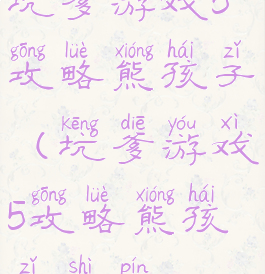 坑爹游戏5
gōng lüè xióng hái zǐ
攻略熊孩子
kēng diē yóu xì
(坑爹游戏
gōng lüè xióng hái
5攻略熊孩
zǐ shì pín